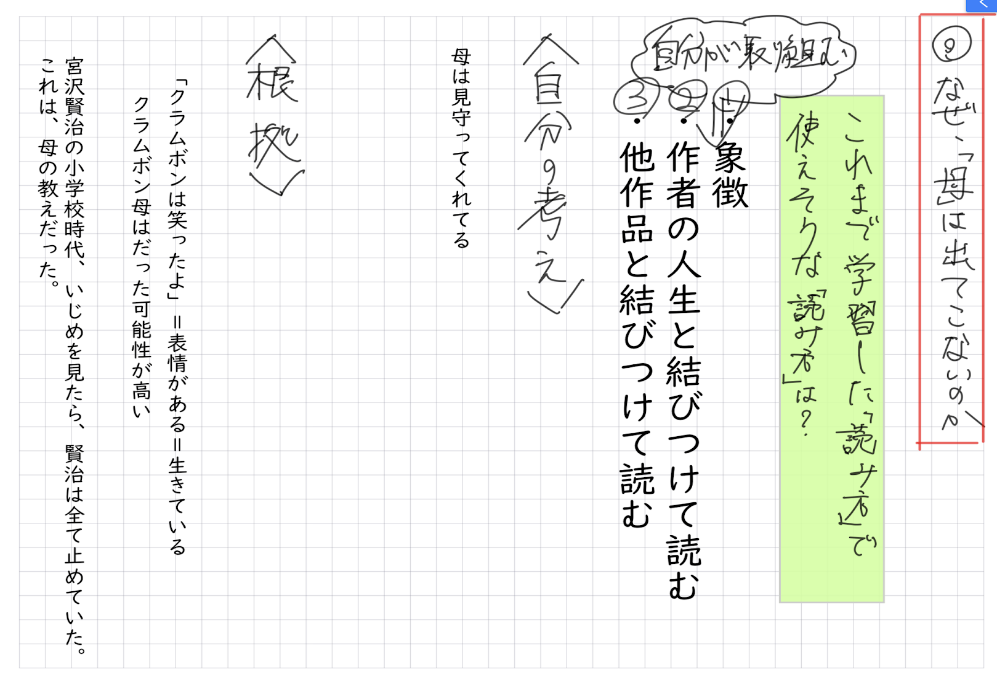 ⑨なぜ、「母」は出てこないのか
これまで学習した「読み方」で
使えそうな「読み方」は？
自分が取り組む
①・象徴
②・作者の人生と結びつけて読む
③・他作品と結びつけて読む
〈自分の考え〉
母は見守ってくれてる
〈根拠〉
「クラムボンは笑ったよ」＝表情がある＝生きている
クラムボン母はだった可能性が高い
宮沢賢治の小学校時代、いじめを見たら、賢治は全て止めていた。
これは、母の教えだった。